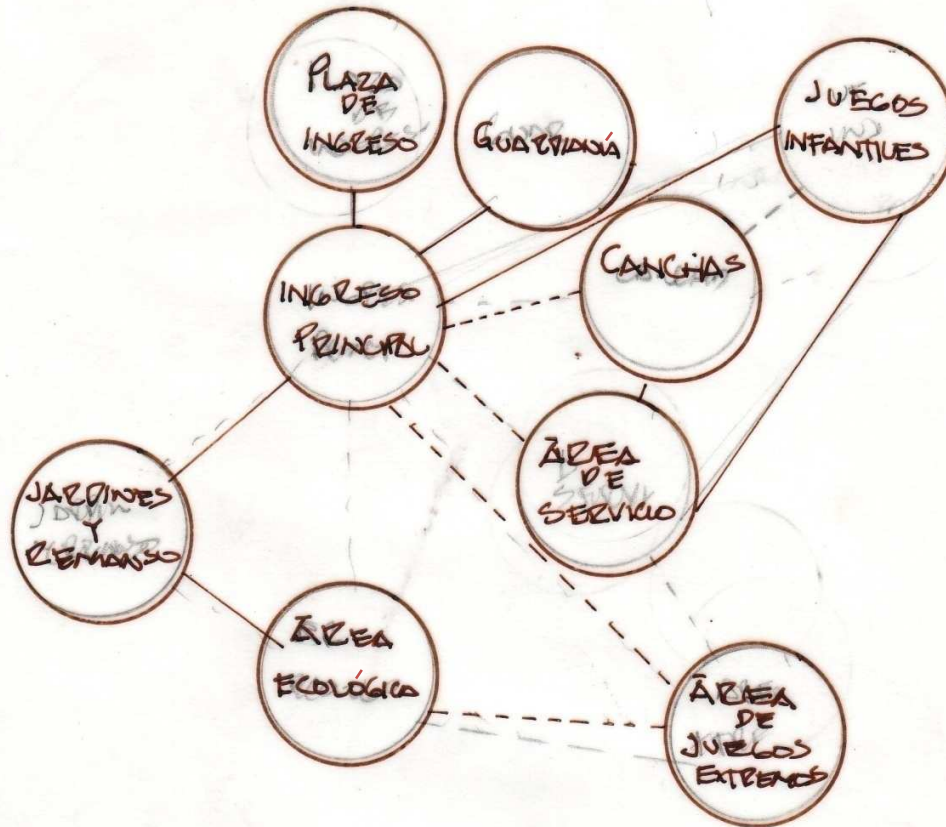 PLAZA
DE
INGRESO
GUARDIANÍA
JUEGOS
INFANTILES
INGRESO
PRINCIPAL
CANCHAS
ÁREA
DE
SERVICIO
JARDINES
Y
REMANSO
ÁREA
ECOLÓGICA
ÁREA
DE
JUEGOS
EXTREMOS